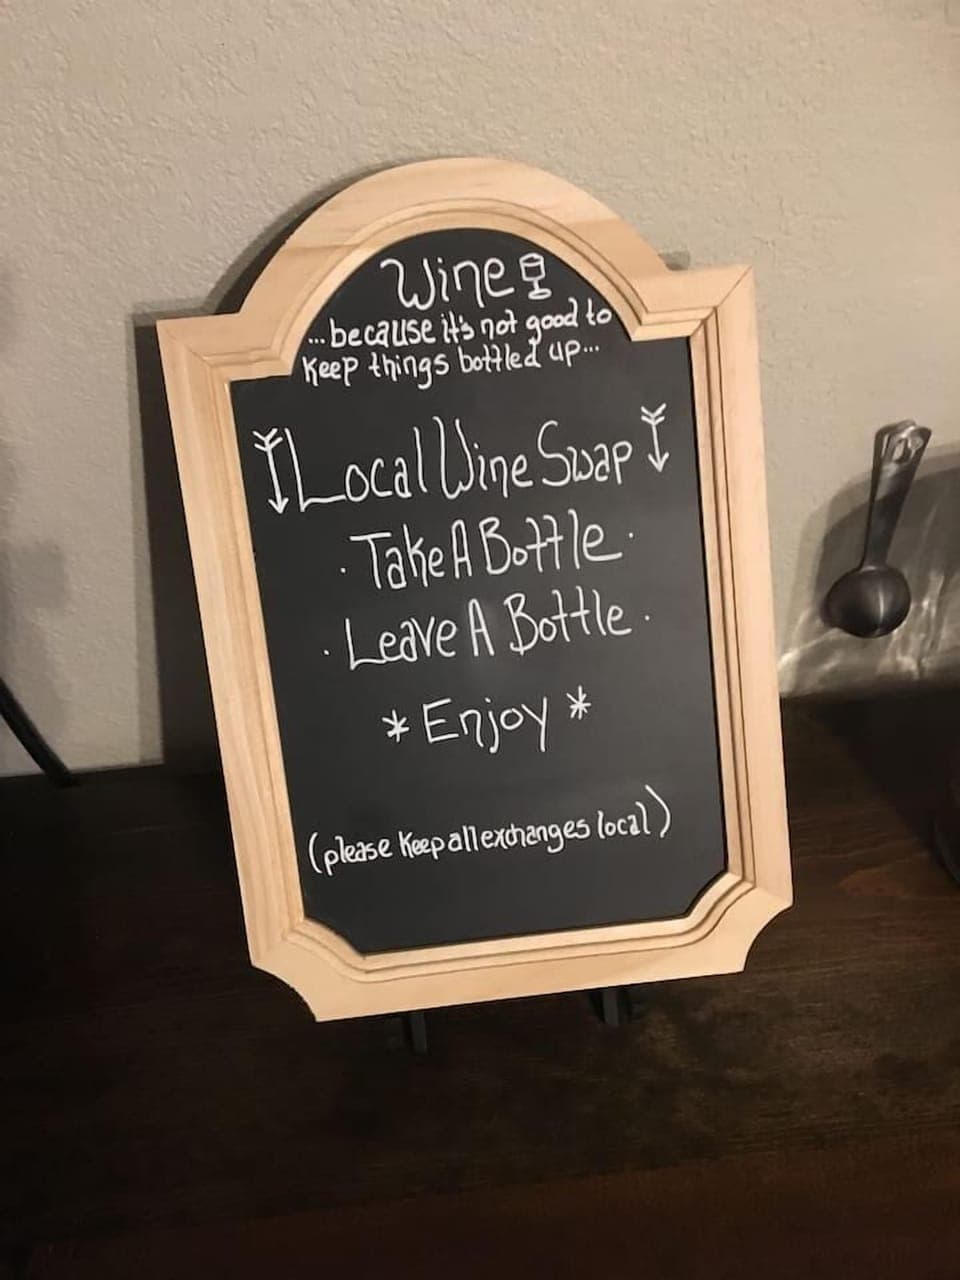 Wine
...because it's not good to
keep things bottled up...
Local Wine Swap
· Take A Bottle ·
· Leave A Bottle ·
* Enjoy *
(please keep all exchanges local)